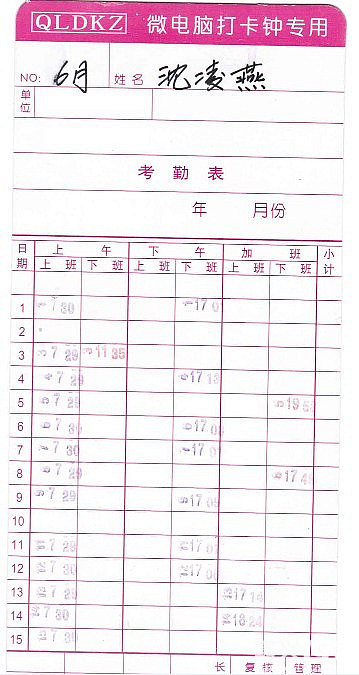 QLDKZ 微电脑打卡钟专用
NO: 6月 姓名 沈凌燕
单位
考勤表
年 月份
日期 上午 下午 加班 小计
上班 下班 上班 下班 上班 下班
1 7 30 17 0
2
3 7 29 11 35
4 7 29 17 13
5 7 29 19 5
6 7 30 17 0
7 7 30 17 0
8 7 29 17 4
9 7 29 17 0
10
11 7 29 17 0
12 7 30 17 0
13 7 29 17 14
14 7 30 18 24
15 7 30
长 复核 管理